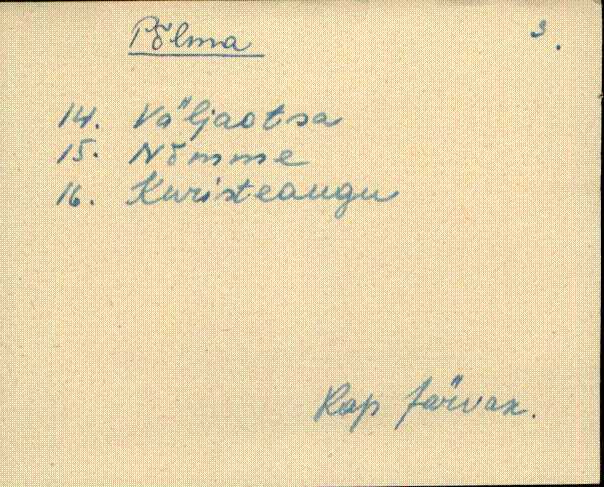 Põlma 3.
14. Väljaotsa
15. Nõmme
16. Kuristeaugu
Rap Järvak.